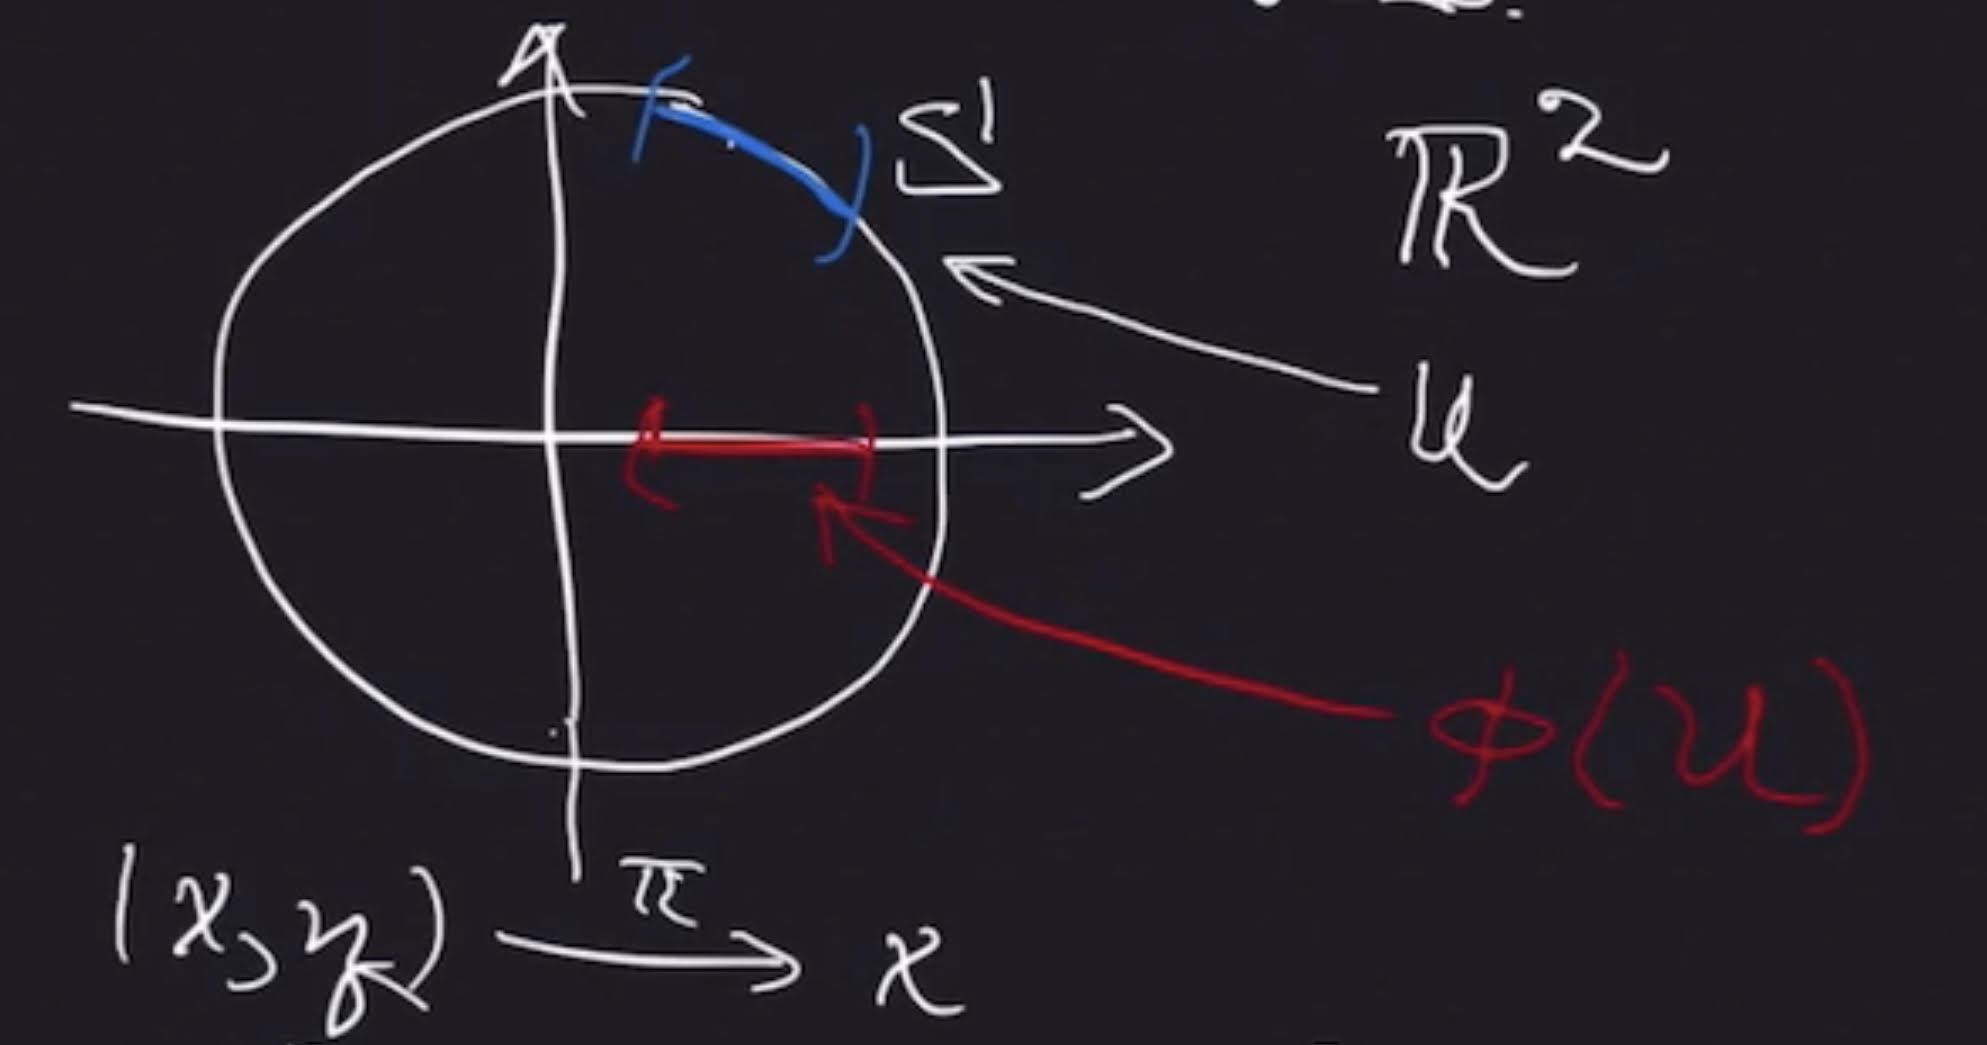 S¹
ℝ²
U
ϕ(U)
(x,y) π→ x